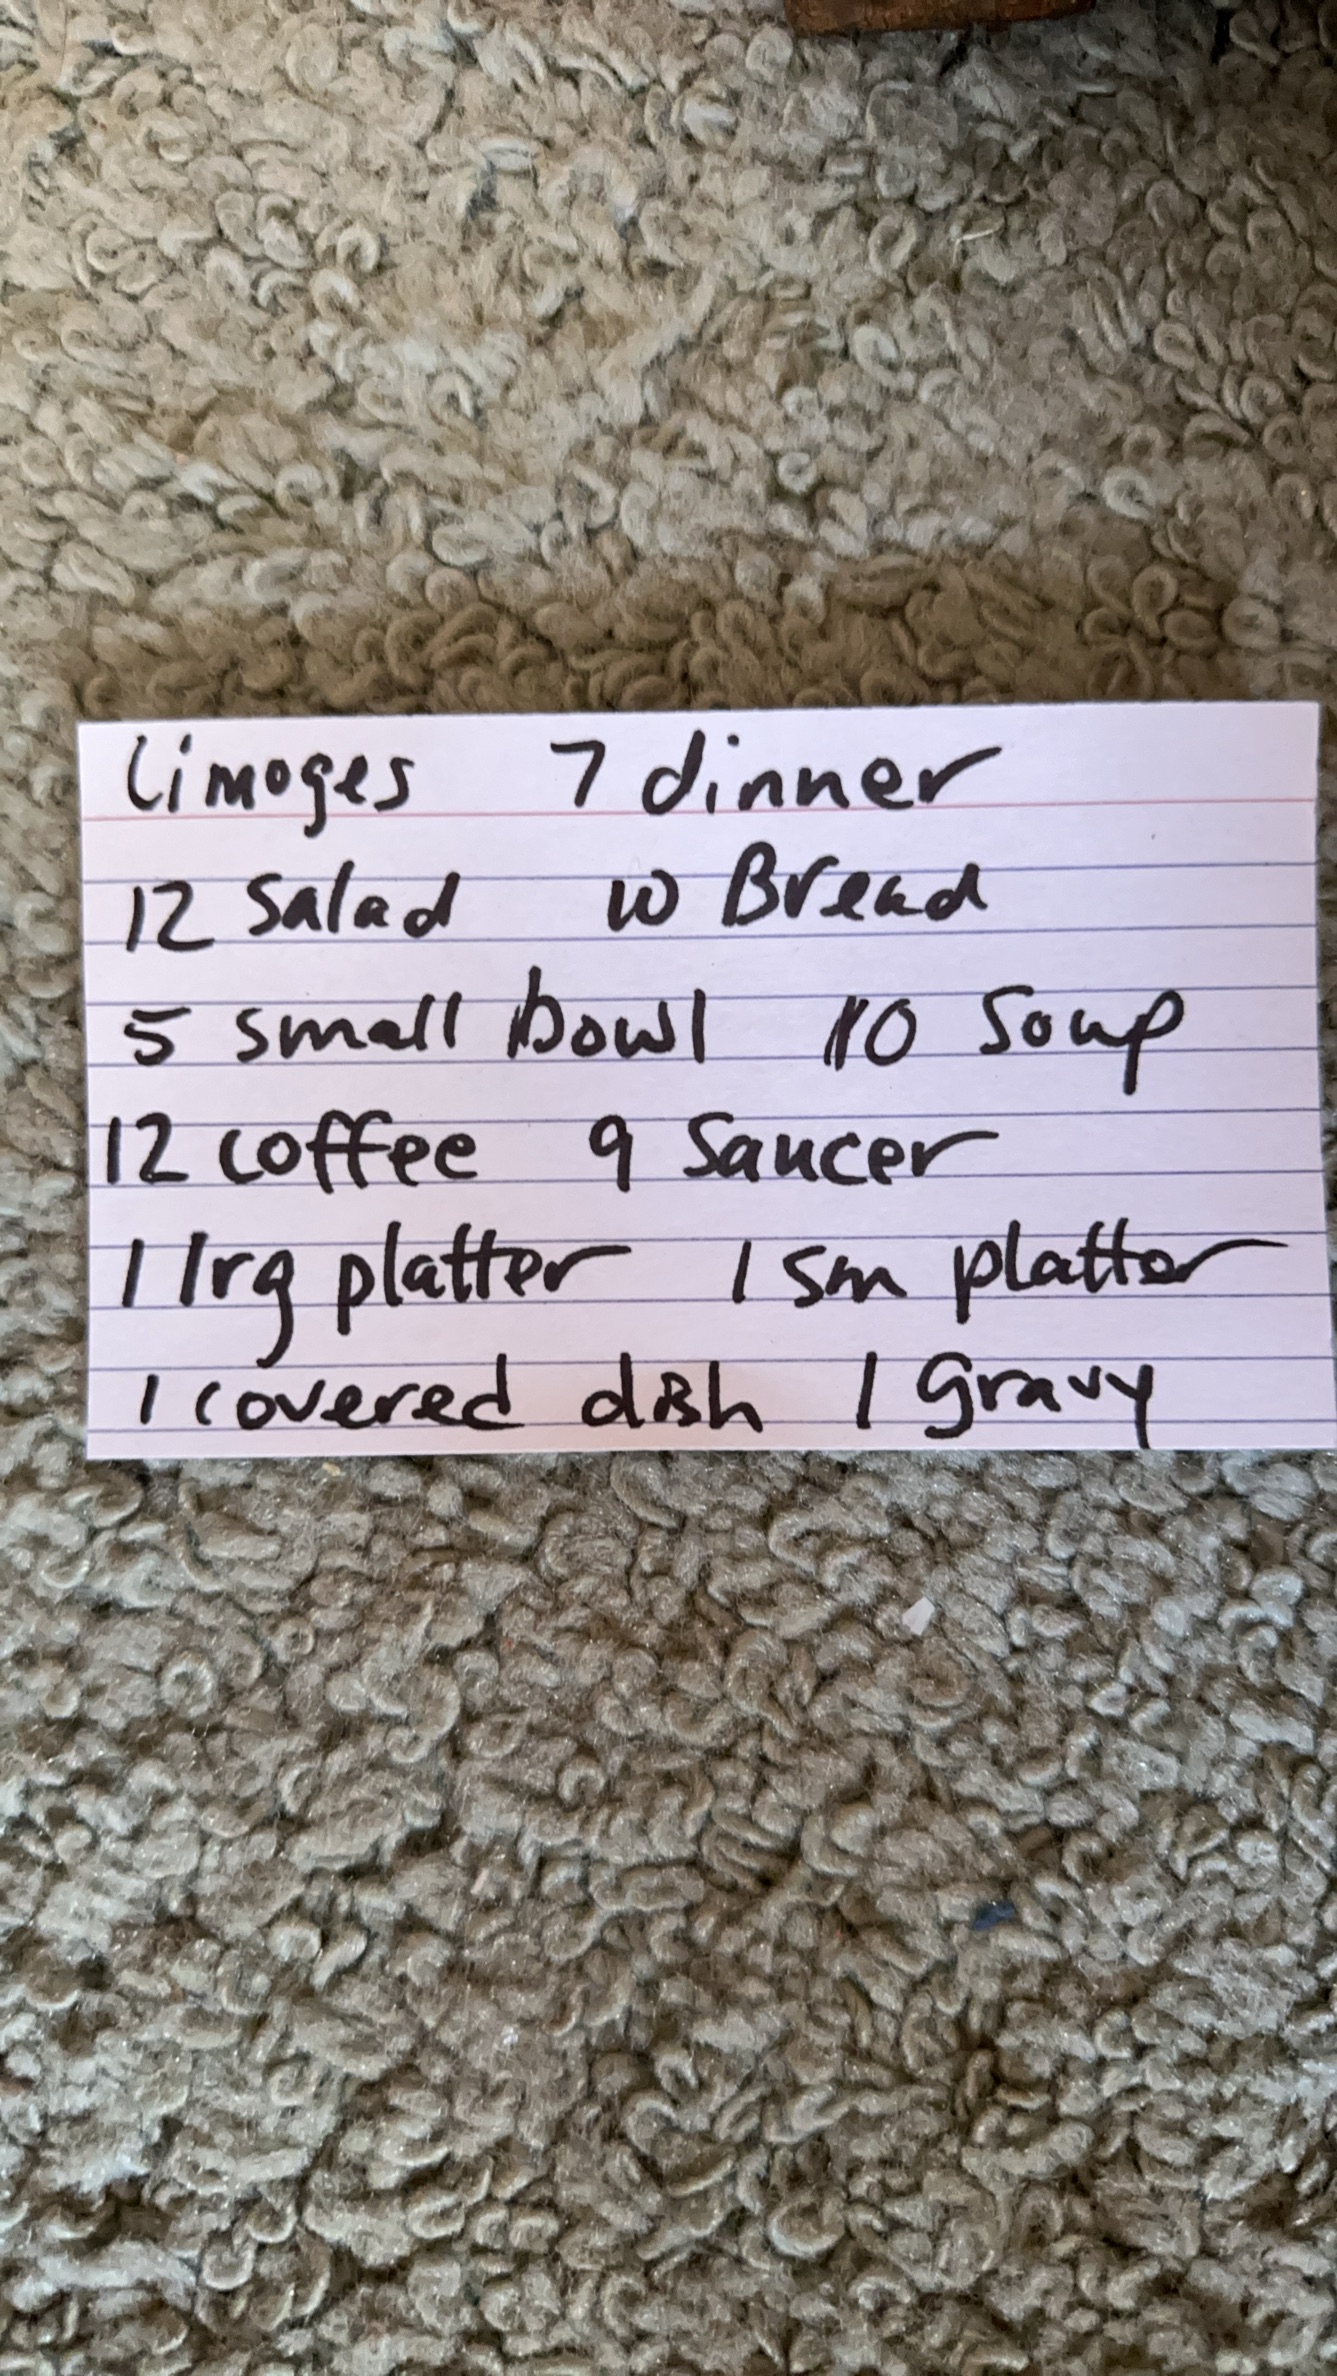 Limoges 7 dinner
12 Salad 10 Bread
5 small bowl 10 Soup
12 coffee 9 Saucer
1 lrg platter 1 sm platter
1 covered dish 1 Gravy